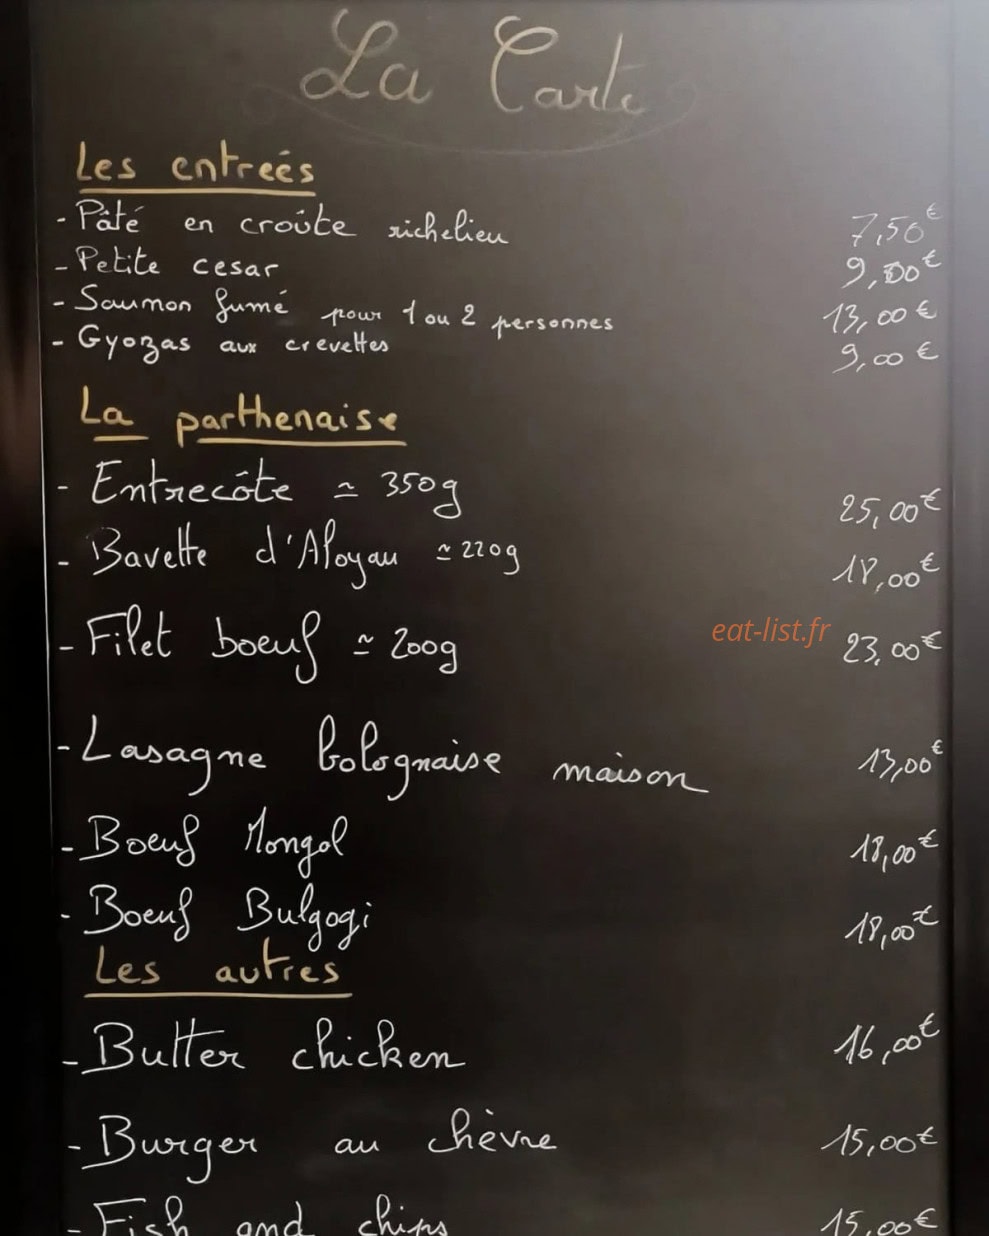 La Carte
Les entreés
- Pâté en croûte richelieu 7,50€
- Petite cesar 9,00€
- Saumon fumé pour 1 ou 2 personnes 13,00€
- Gyozas aux crevettes 9,00€
La parthenaise
- Entrecôte ≃ 350g 25,00€
- Bavette d'Aloyau ≃ 220g 18,00€
- Filet boeuf ≃ 200g 23,00€
eat-list.fr
- Lasagne bolognaise maison 13,00€
- Boeuf Mongol 18,00€
- Boeuf Bulgogi 18,00€
Les autres
- Butter chicken 16,00€
- Burger au chèvre 15,00€
- Fish and chips 15,00€